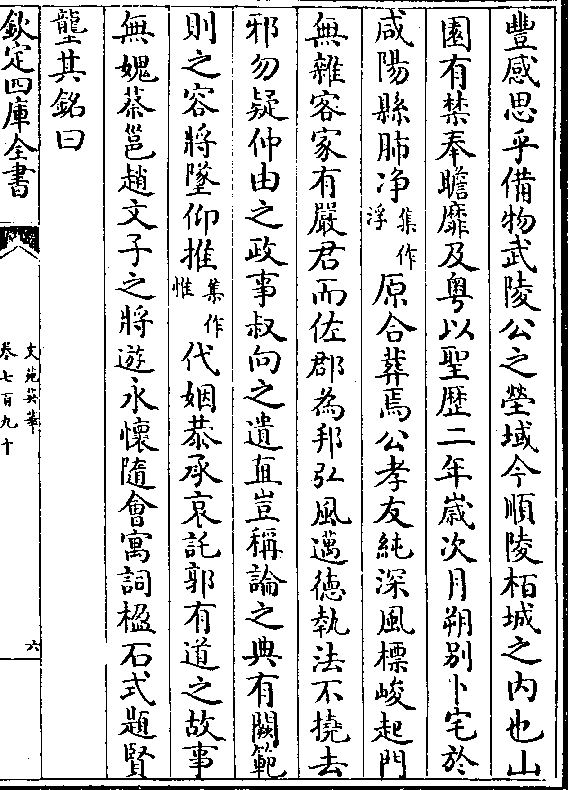 豐感思乎備物武陵公之塋域今順陵栢城之内也山
園有禁奉瞻靡及粤以聖歴二年歳次月朔别卜宅於
咸陽縣肺净集作浮原合葬焉公孝友純深風標峻起門
無雜容家有嚴君而佐郡為邦弘風邁徳執法不撓去
邪勿疑仲由之政事叔向之遺直豈稱論之典有闕範
則之容將墜仰推集作惟代姻恭承哀託郭有道之故事
無媿蔡邕趙文子之將遊永懷隨會寓詞楹石式題賢
壟其銘曰
欽定四庫全書
文苑英華
卷七百九十
六